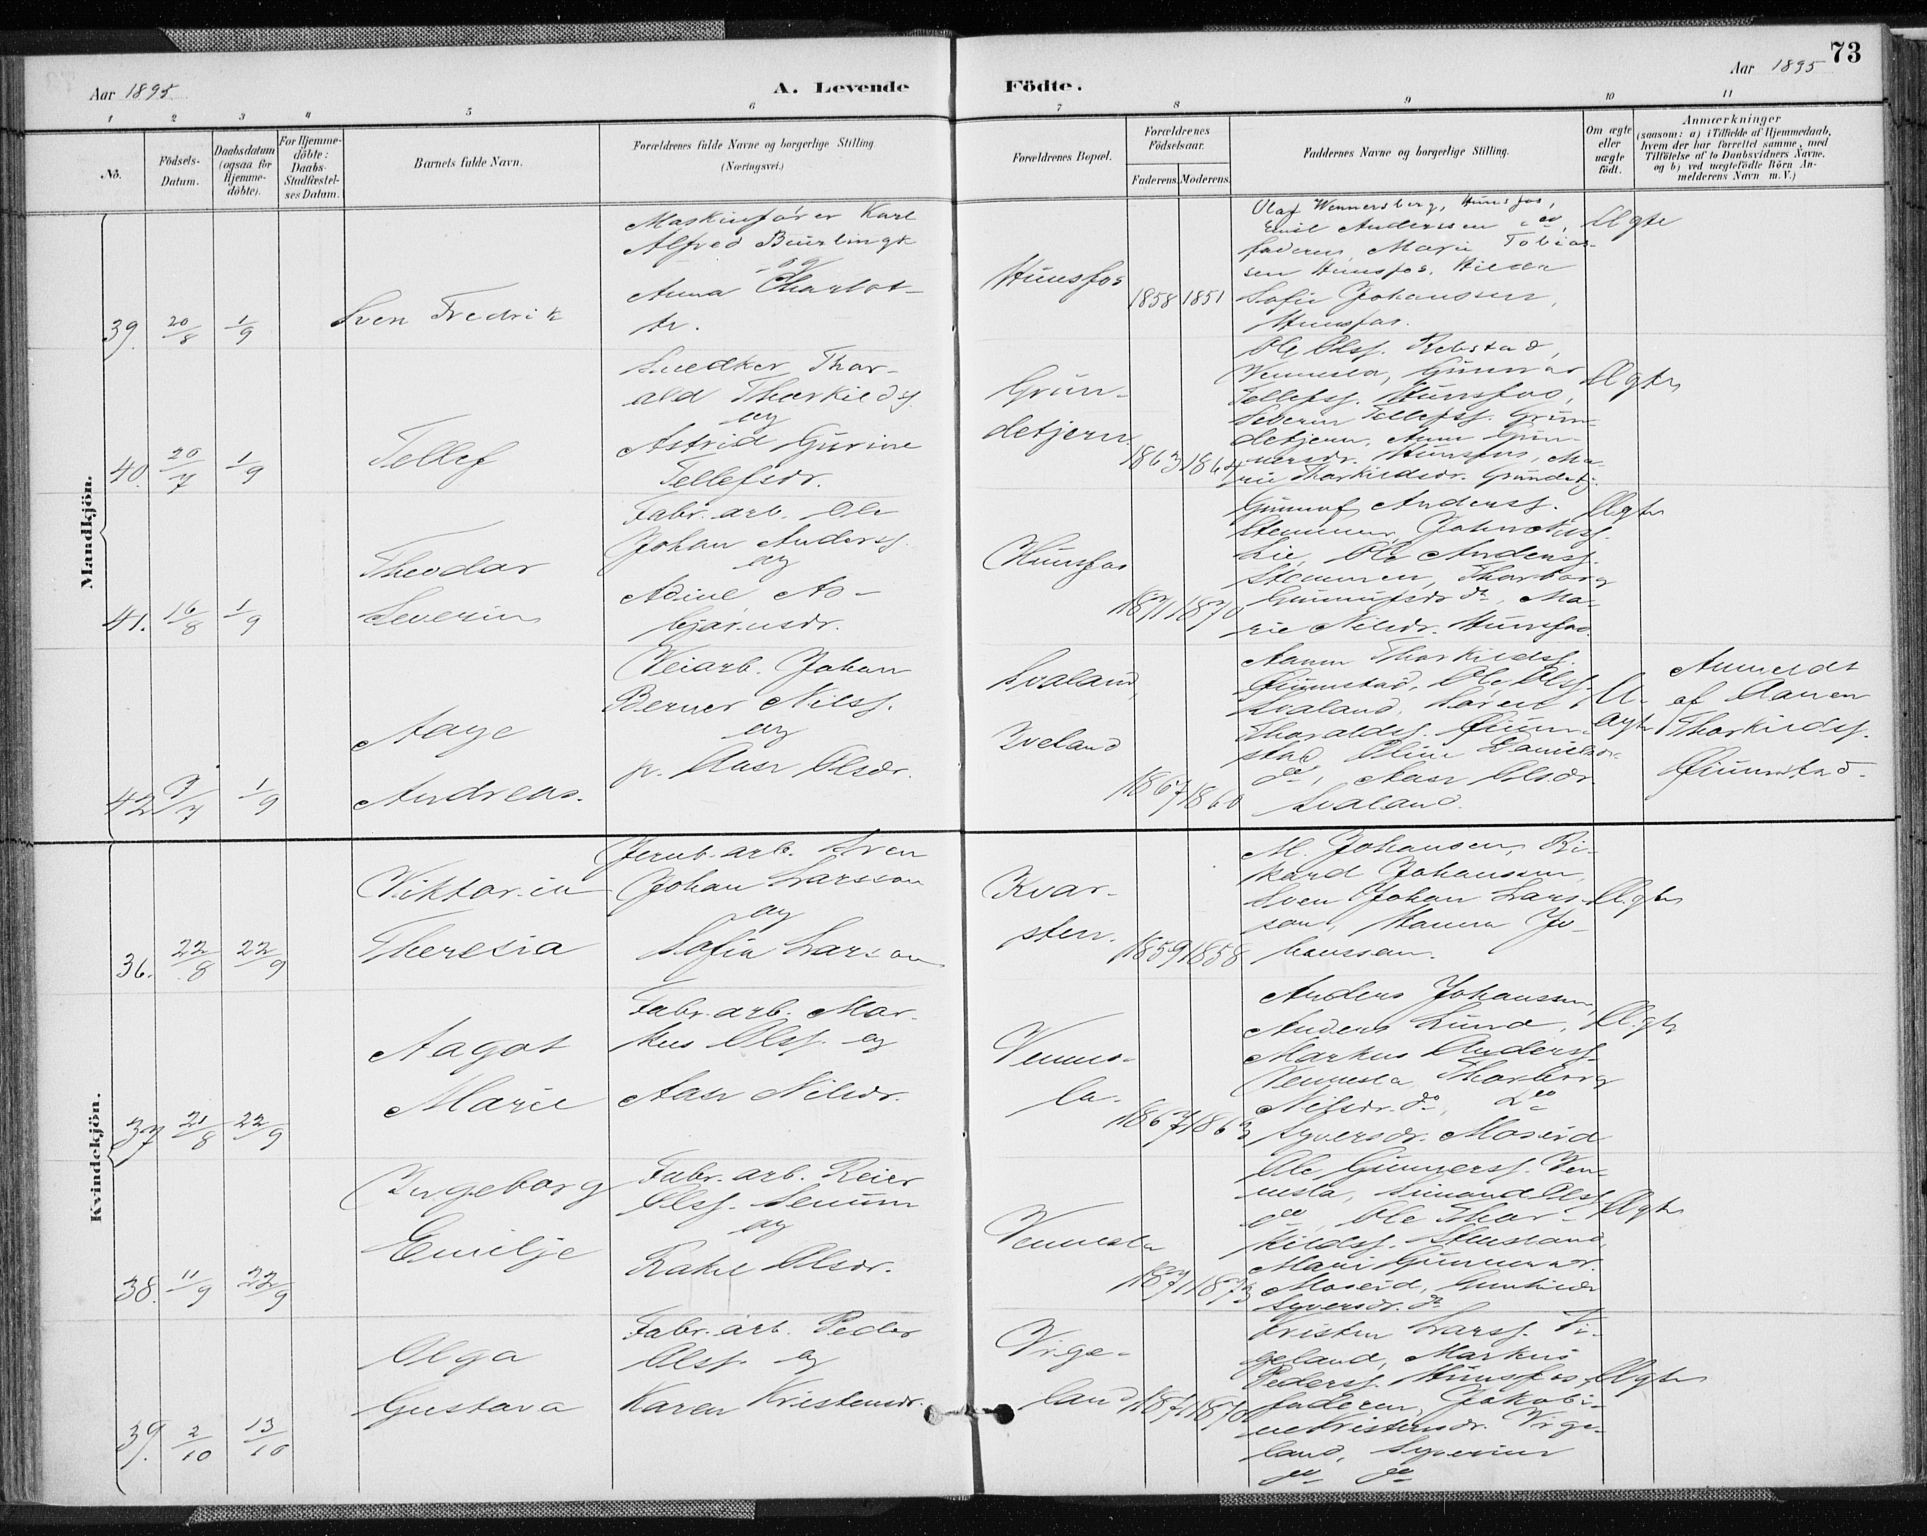 73
Aar 1895
A. Levende
Födte.
Aar 1895
1 2 3 4 5 6 7 8 9 10 11
No.
Födsels-
Datum.
Daabsdatum
(ogsaa for
Hjemme-
döbte).
For Hjemme-
döbte:
Daabs-
Stadfæstel-
ses Datum.
Barnets fulde Navn.
Forældrenes fulde Navne og borgerlige Stilling
(Næringsvei.)
Forældrenes Bopæl.
Forældrenes
Födselsaar.
Faderens. Moderens.
Faddernes Navne og borgerlige Stilling.
Om ægte
eller
uægte
född.
Anmærkninger
(saasom: a) i Tilfælde af Hjemmedaab,
hvem der har forrettet samme, med
Tilföielse af to Daabsvidners Navne,
og b) ved uægtefödte Börn An-
melderens Navn m. V.)
Mandkjön.
39. 20/8 1/9
Sven Fredrik
Maskinfører Karl
Alfred Beurlingk
og
Anna Charlot-
te.
Hunsfos
1858 1851
Olaf Wennersberg, Hunsfos,
Emil Anderssen do,
faderen, Marie Tobias-
sen Hunsfos, Hilda
Sofie Johanssen,
Hunsfos.
Ægte
40. 20/7 1/9
Tellef
Snedker Thor-
ald Thorkilds.
og
Astrid Gurine
Tellefsdr.
Grun-
detjern.
1863 1864
Ole Olss. Rebstad,
Vennesla, Gunnar
Tellefss. Hunsfos,
Severin Tellefss. Grun-
detjern, Anne Gun-
nersdr. Hunsfos, Ma-
rie Thorkildsdr. Grundetj.
Ægte
41. 16/8 1/9
Theodor
Severin
Fabr. arb. Ole
Johan Anderss.
og
Adine As-
bjørnsdr.
Hunsfos
1871 1870
Gunnuf Anderss.
Stemmen, John Nilss.
Lie, Ole Anderss.
Stemmen, Thorborg
Gunnufsdr do, Ma-
rie Nilsdr. Hunsfos.
Ægte
42 3/7 1/9
Aage
Andreas.
Veiarb. Johan
Berner Nilss.
og
p. Aase Olsdr.
Svaland,
Iveland
1867 1860
Aanen Thorkildss.
Ole Olss.
Svaland, Søren
Thoraldss.
Oline Danielsdr.
do, Aase Olsdr.
Svaland.
U-
ægte
Anmeldt
af Aanen
Thorkildss.
Kvindekjön.
36. 22/8 22/9
Viktoria
Theresia
Jernb. arb. Sven
Johan Larsson
og
Sofia Larson
Kvar-
sten.
1859 1858
M. Johansen, Ri-
kard Johanssen,
Sven Johan Lars-
son, Hanna Jo-
hanssen.
Ægte
37 21/8 22/9
Aagot
Marie
Fabr. arb. Mar-
kus Olss. og
Aase Nilsdr.
Vennes-
la.
1867 1863
Anders Johanssen,
Anders Lund,
Markus Anderss.
Vennesla, Thorborg
Nilsdr. do, do
Syversdr. Moseid
Ægte
38. 11/9 22/9
Ingeborg
Emilje
Fabr. arb. Reier
Olss. Senum
og
Rakel Olsdr.
Vennesla
1871 1873
Ole Gunnerss. Ven-
nesla, Simond Olss.
do, Ole Thor-
kildss.
Mari Gunnersdr.
Moseid, Gunhild
Syversdr. do
Ægte
39. 2/10 13/10
Olga
Gustava
Fabr. arb. Peder
Olss. og
Karen Kristensdr.
Vige-
land
1871 1870
Kristen Larss. Vi-
geland, Markus
Pederss. Hunsfos
faderen, Jakobi-
ne Kristensdr. Vige-
land, Syverine
do do
Ægte